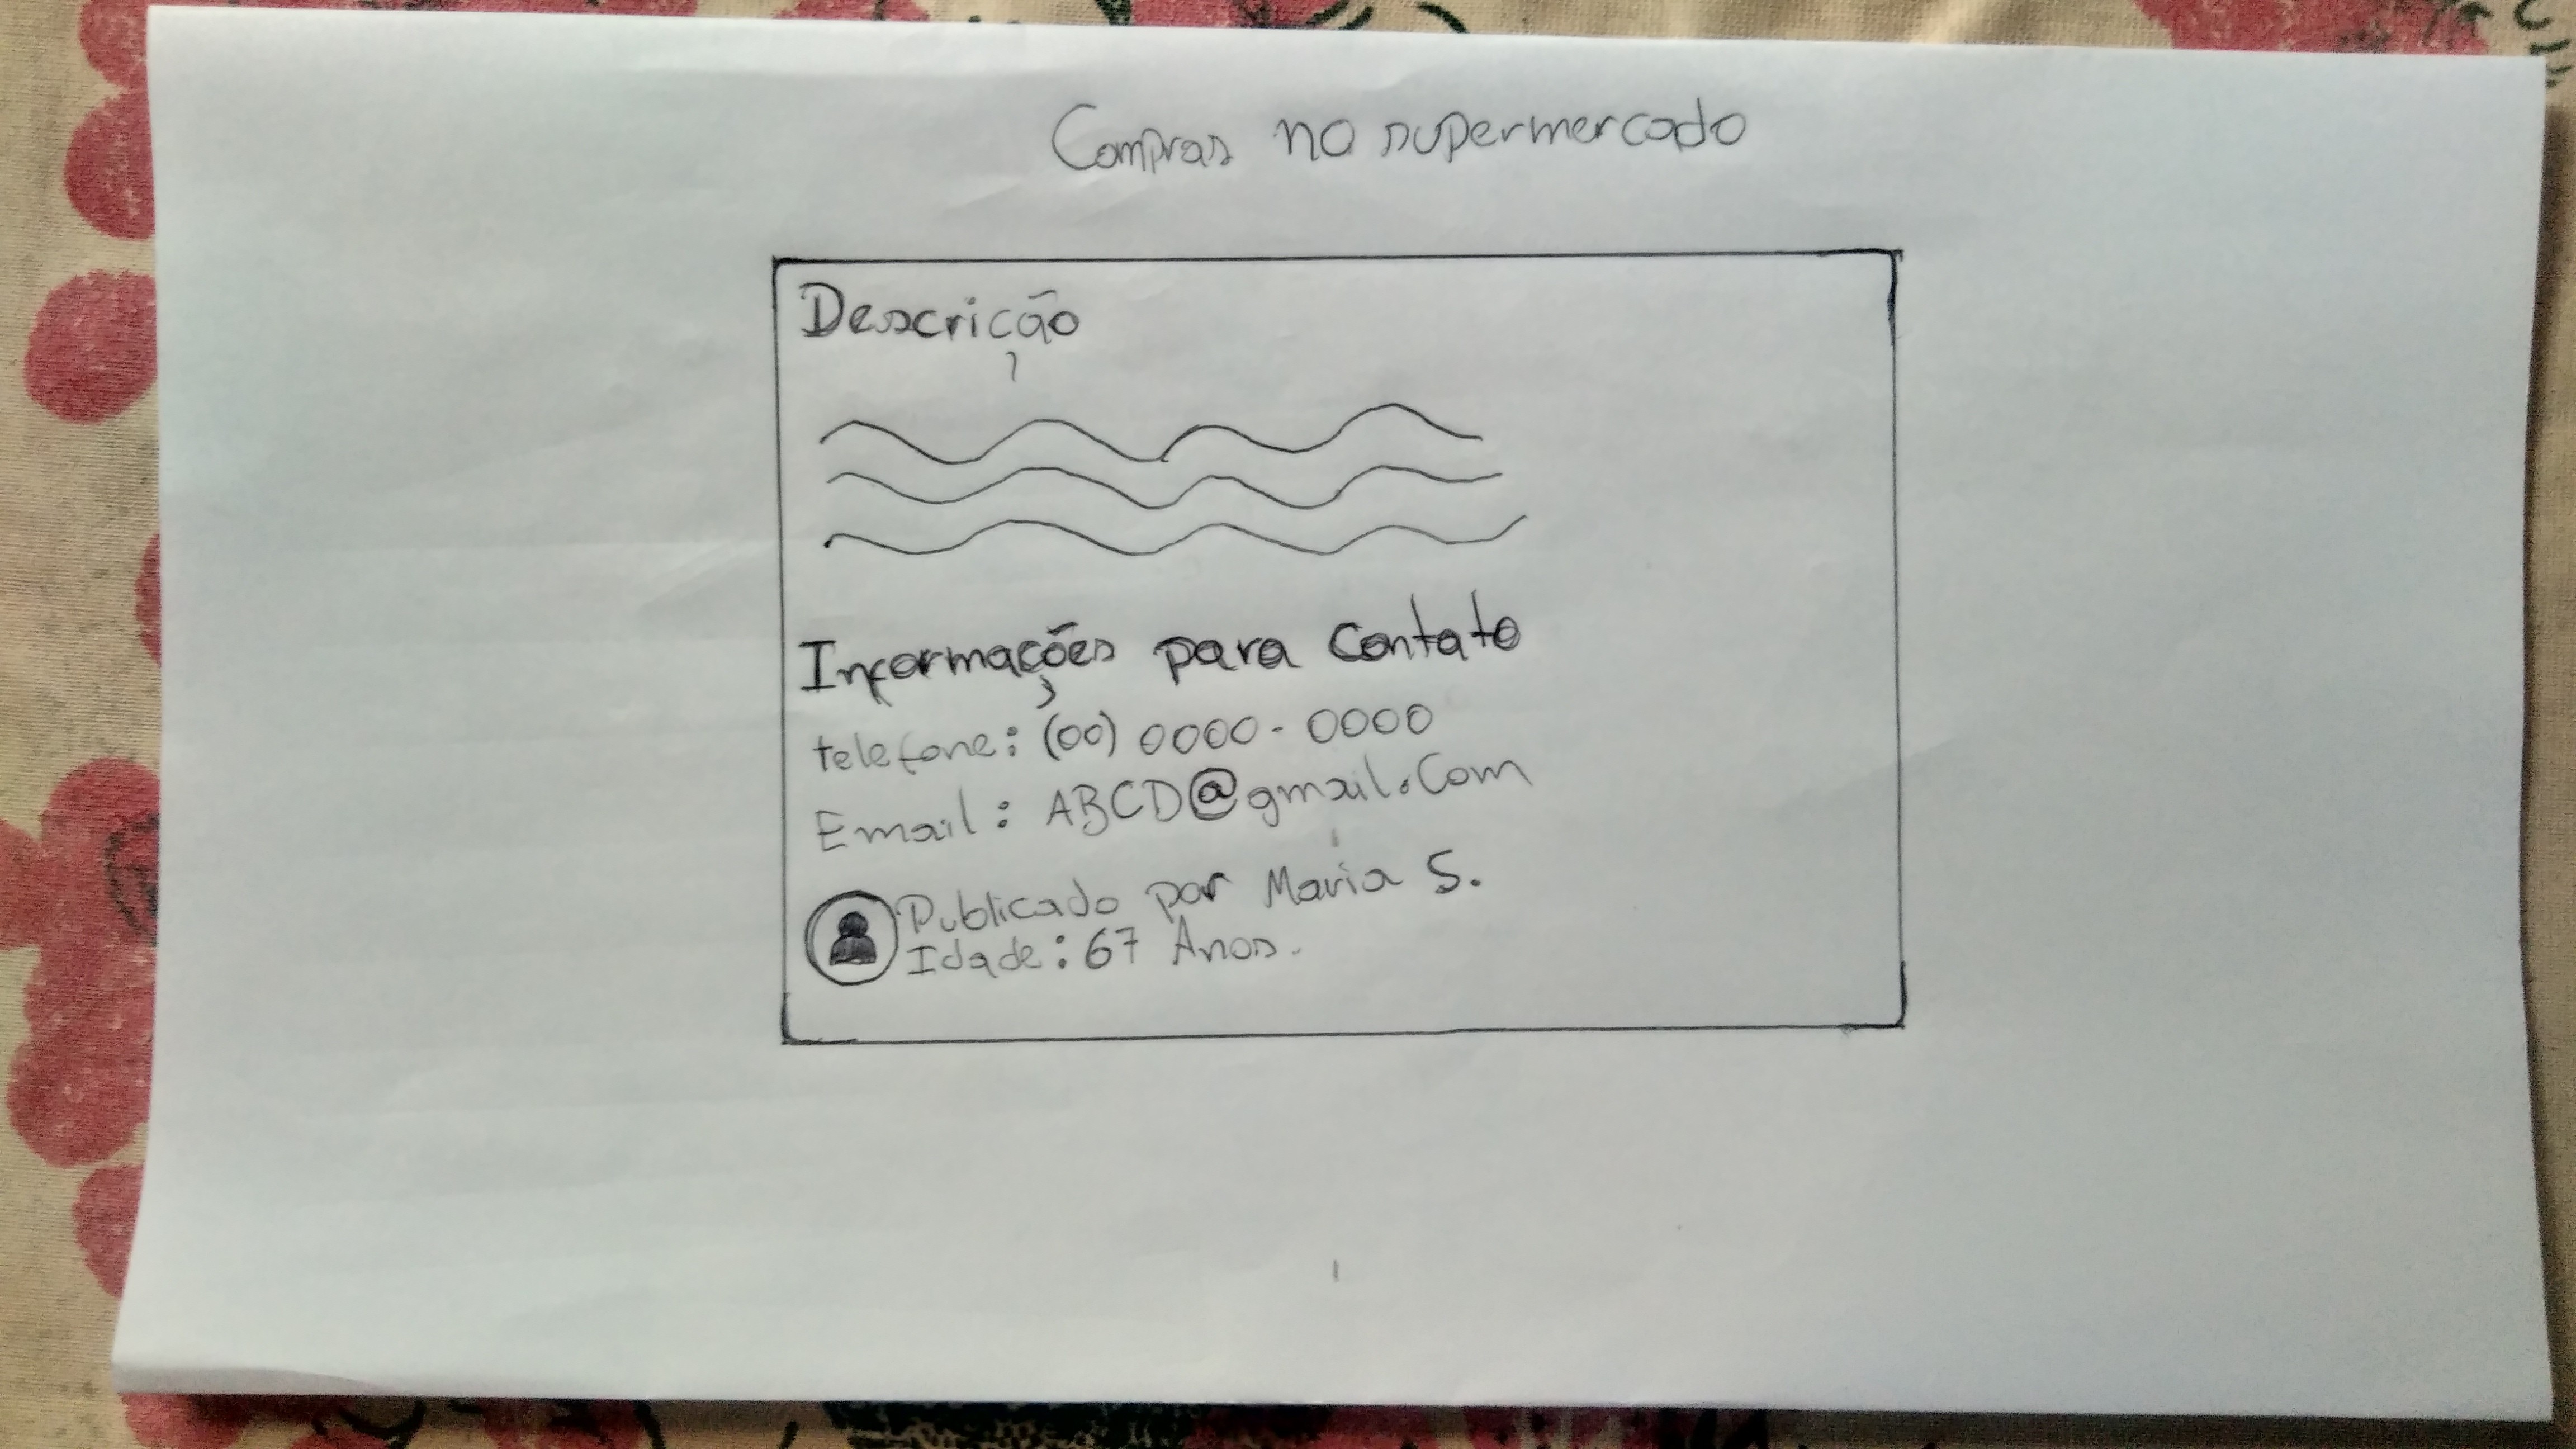 Compras no supermercado
Descrição
Informações para Contato
telefone: (00) 0000-0000
Email: ABCD@gmail.Com
Publicado por Maria S.
Idade: 67 Anos.